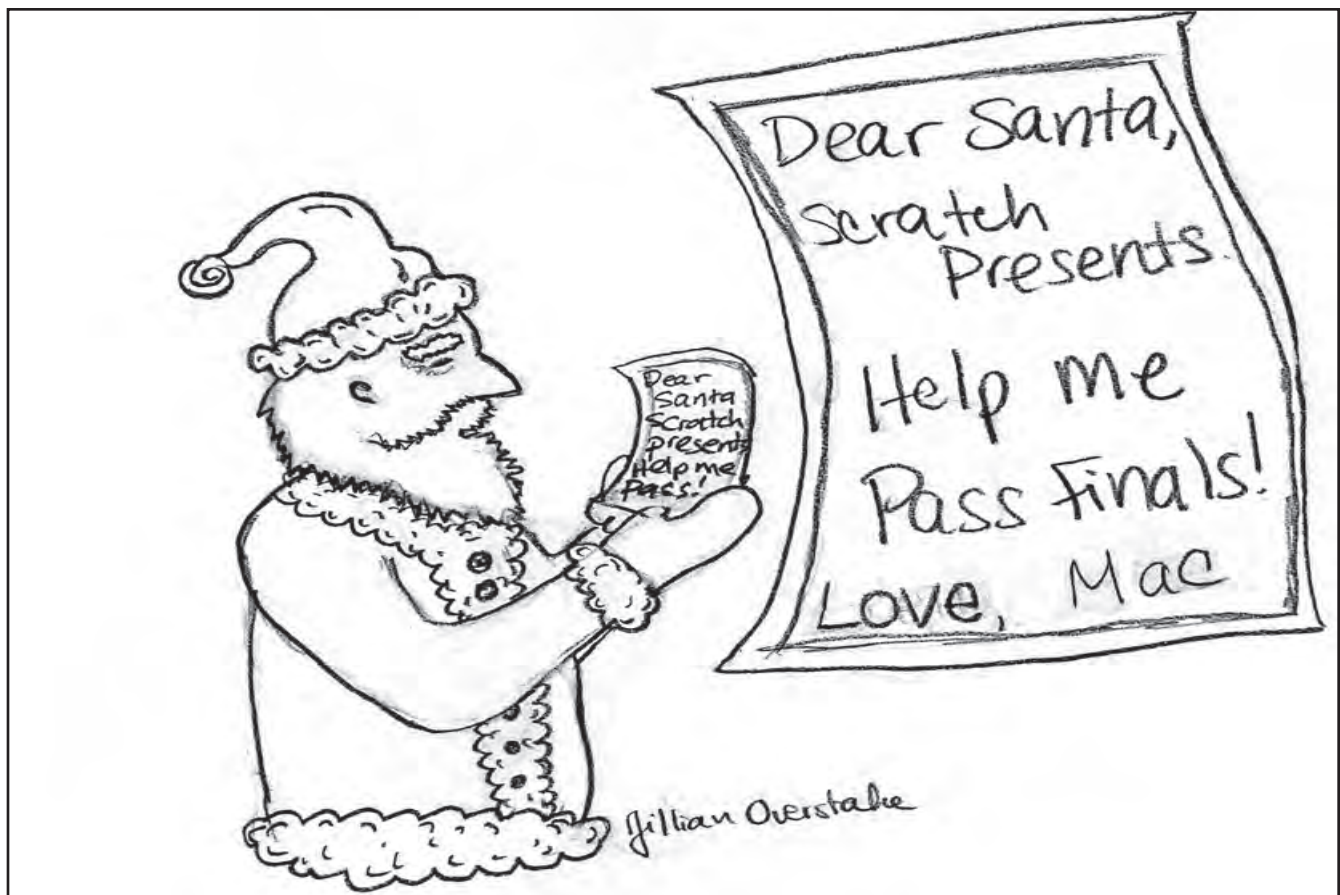 Dear Santa,
Scratch
Presents.
Help me
Pass Finals!
Love, Mac
Dear
Santa
Scratch
presents
Help me
Pass!
Jillian Overstake